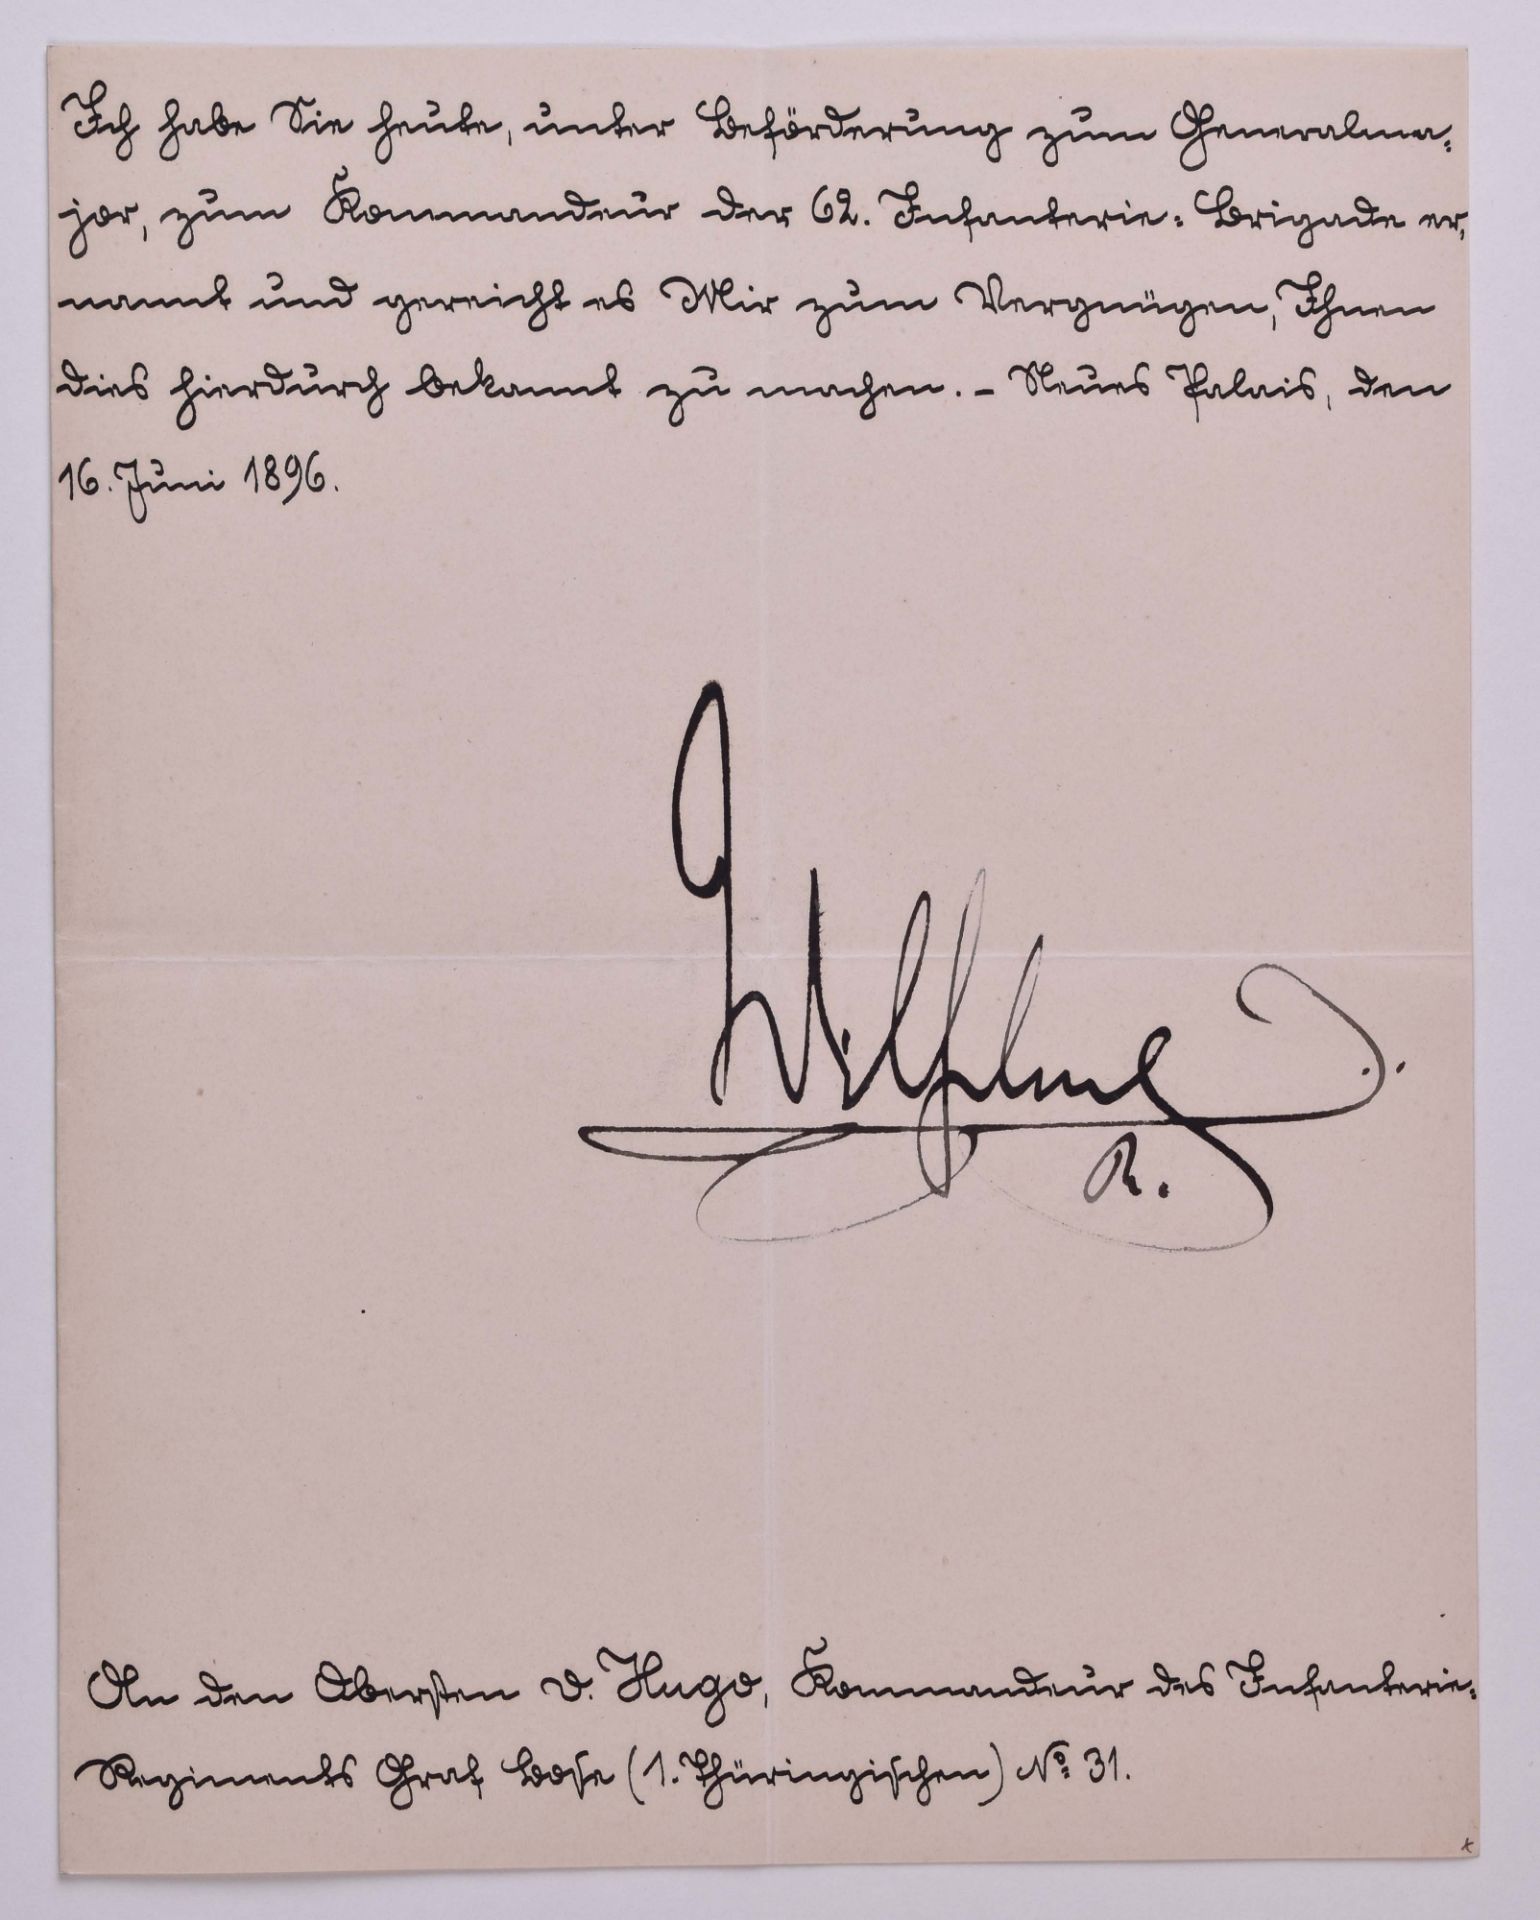 Ich habe Sie heute, unter Beförderung zum Generalma-
jor, zum Kommandeur der 62. Infanterie-Brigade er-
nannt und gereicht es Mir zum Vergnügen, Ihnen
dies hierdurch bekannt zu machen. - Neues Palais, den
16. Juni 1896.
Wilhelm
R.
An den Obersten v. Hugo, Kommandeur des Infanterie-
Regiments Graf Bose (1. Thüringischen) No 31.